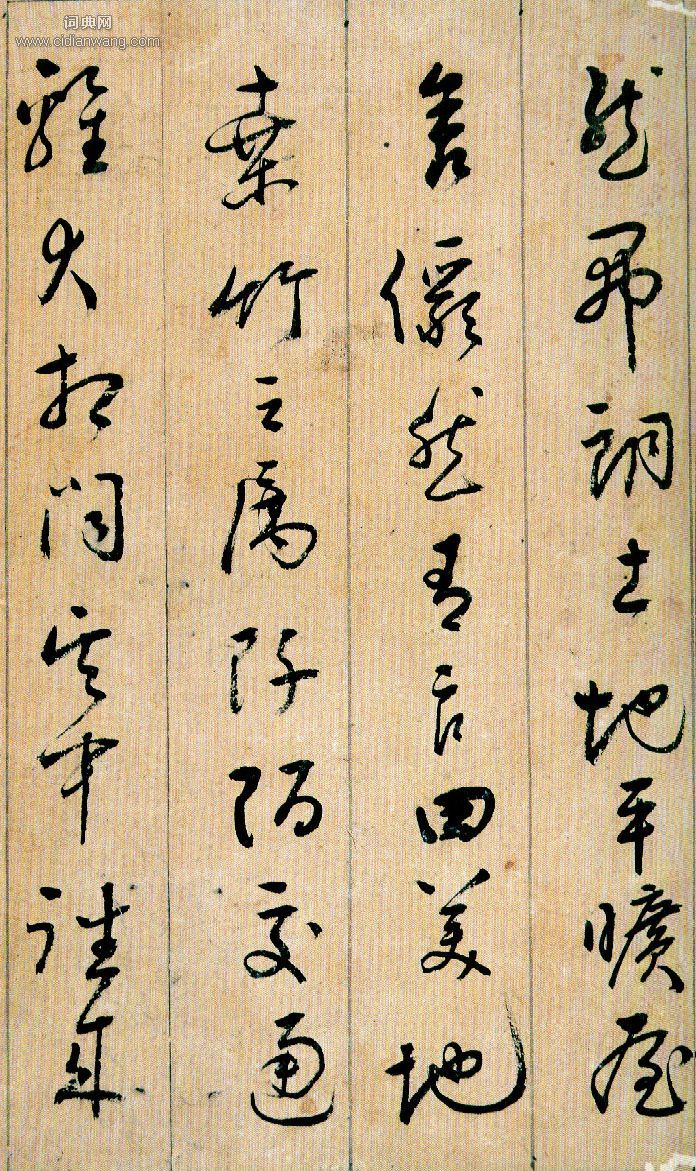 词典网
www.cidianwang.com
然開朗土地平曠屋
舍儼然有良田美地
桑竹之属阡陌交通
雞犬相聞其中往來